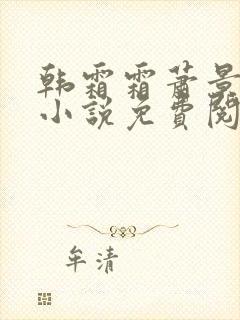 韩霜霜萧景
小说免费阅
牟清